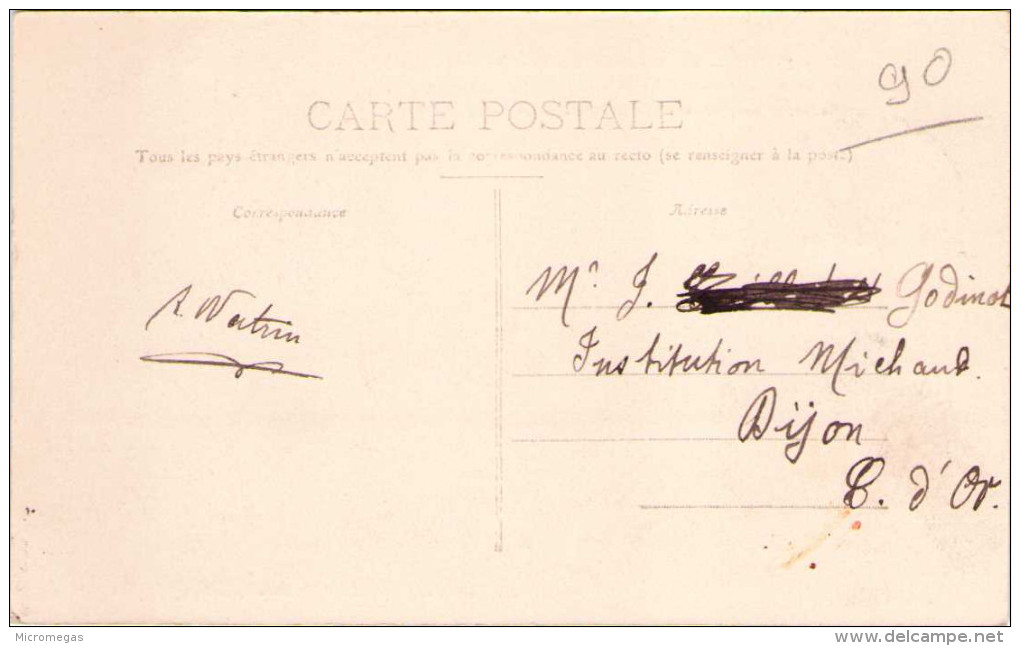 90
CARTE POSTALE
Tous les pays étrangers n'acceptent pas la correspondance au recto (se renseigner à la poste)
Correspondance
Adresse
Mr J. Godinot
Institution Michaut.
Dijon
C. d'Or.
A. Watrin
Micromegas
delcampe.net